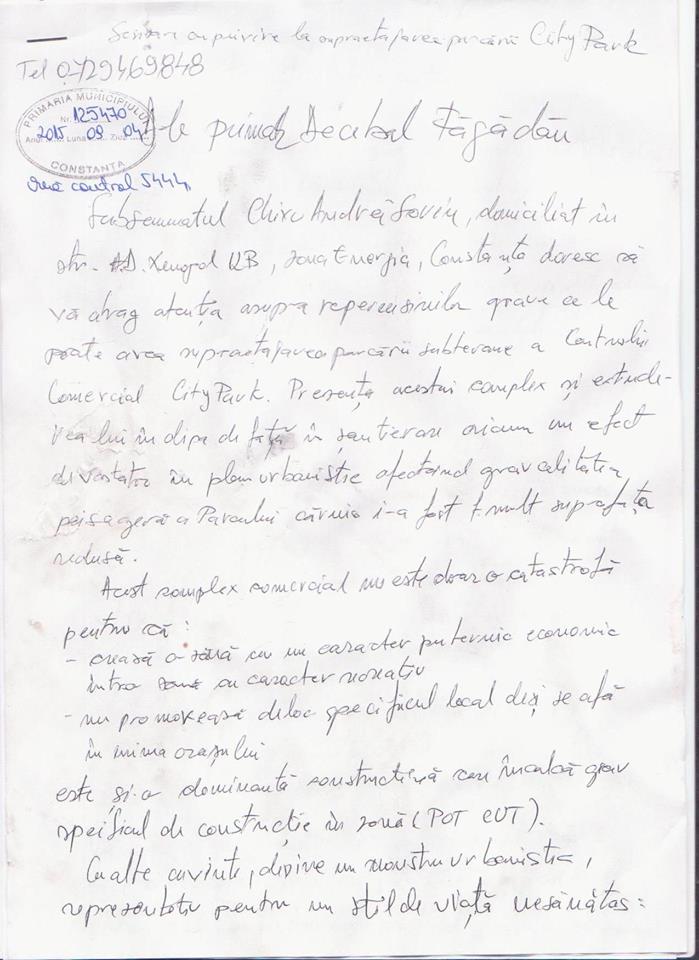 Scrisoare cu privire la supraetajarea parcării City Park
Tel 0729469848
PRIMARIA MUNICIPIULUI
Nr. 125470
Anul 2015 Luna 08 Ziua 04
CONSTANTA
5444
D-le primar Decebal Făgădău
Subsemnatul Chirc Andrei Sorin, domiciliat în
str. A.D. Xenopol 12B, zona Energia, Constanța doresc să
vă atrag atenția asupra repercusiunilor grave ce le
poate avea supraetajarea parcării subterane a Centrului
Comercial City Park. Prezența acestui complex și extinde-
rea lui în clipa de față în șantier are oricum un efect
devastator în plan urbanistic afectând grav calitatea
peisageră a Parcului căruia i-a fost f. mult suprafața
redusă.
Acest complex comercial nu este doar o catastrofă
pentru că:
- crează o zonă cu un caracter puternic economic
într-o zonă cu caracter recreativ
- nu promovează deloc specificul local deși se află
în inima orașului
este și-o dominantă constructivă care încalcă grav
speificul de construcție în zonă (POT CUT).
Cu alte cuvinte, devine un monstru urbanistic,
reprezentativ pentru un stil de viață nesănătos: